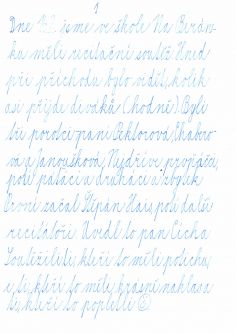 1
Dne 12. jsme ve škole Na Berán-
ku měli recitační soutěž. Hned
při příchodu bylo vidět, kolik
asi přijde diváků (hodně). Byli
tři porotci: paní Peklorová, Chabo-
vá a Janoušková. Nejdříve prvňáci,
poté páťáci a druháci a zbytek
První začal Štěpán Hais, poté další
recitátoři. Uvedl to pan Čácha
Soutěžili ti, kteří to měli potichu,
i ti, kteří to měli krásně nahlas a
ti, kteří to popletli ☺